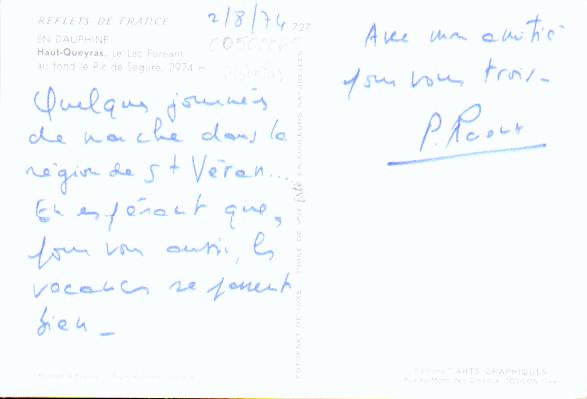 REFLETS DE FRANCE
2/8/74
727
EN DAUPHINE
Haut-Queyras. Le Lac Foréant
au fond le Pic de Ségure, 2974 m
Quelques journées
de marche dans la
région de St Véran...
En espérant que,
pour vous aussi, les
vacances se passent
bien _
Avec mon amitié
pour vous trois _
P. Raoux
"ARTS GRAPHIQUES"
TOULON